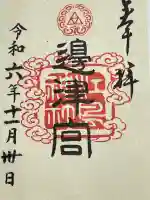 奉拝
邊津宮
令和六年十一月卅日